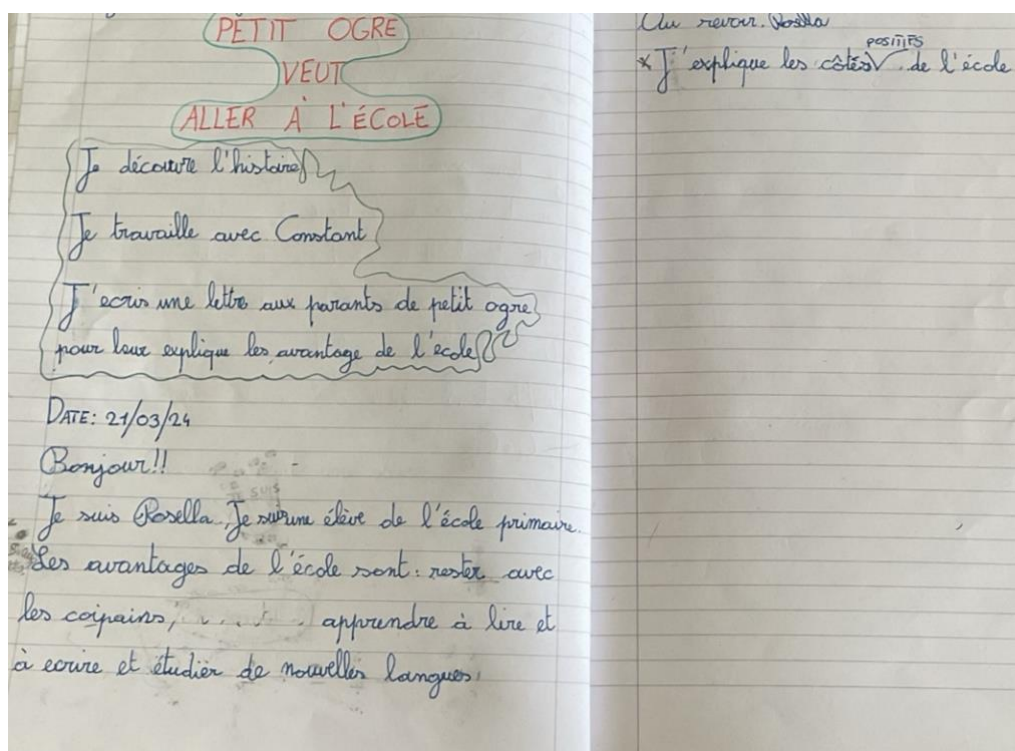 PETIT OGRE
VEUT
ALLER À L'ÉCOLE
Je découvre l'histoire
Je travaille avec Constant
J'ecris une lettre aux parants de petit ogre
pour leur explique les avantage de l'ecole
DATE: 21/03/24
Bonjour!!
Je suis Rosella. Je suis une élève de l'école primaire.
Les avantages de l'école sont: rester avec
les coipains, apprendre à lire et
à ecrire et étudier de nouvelles langues.
Au revoir. Rosella
POSITIFS
* J'explique les côtés de l'école